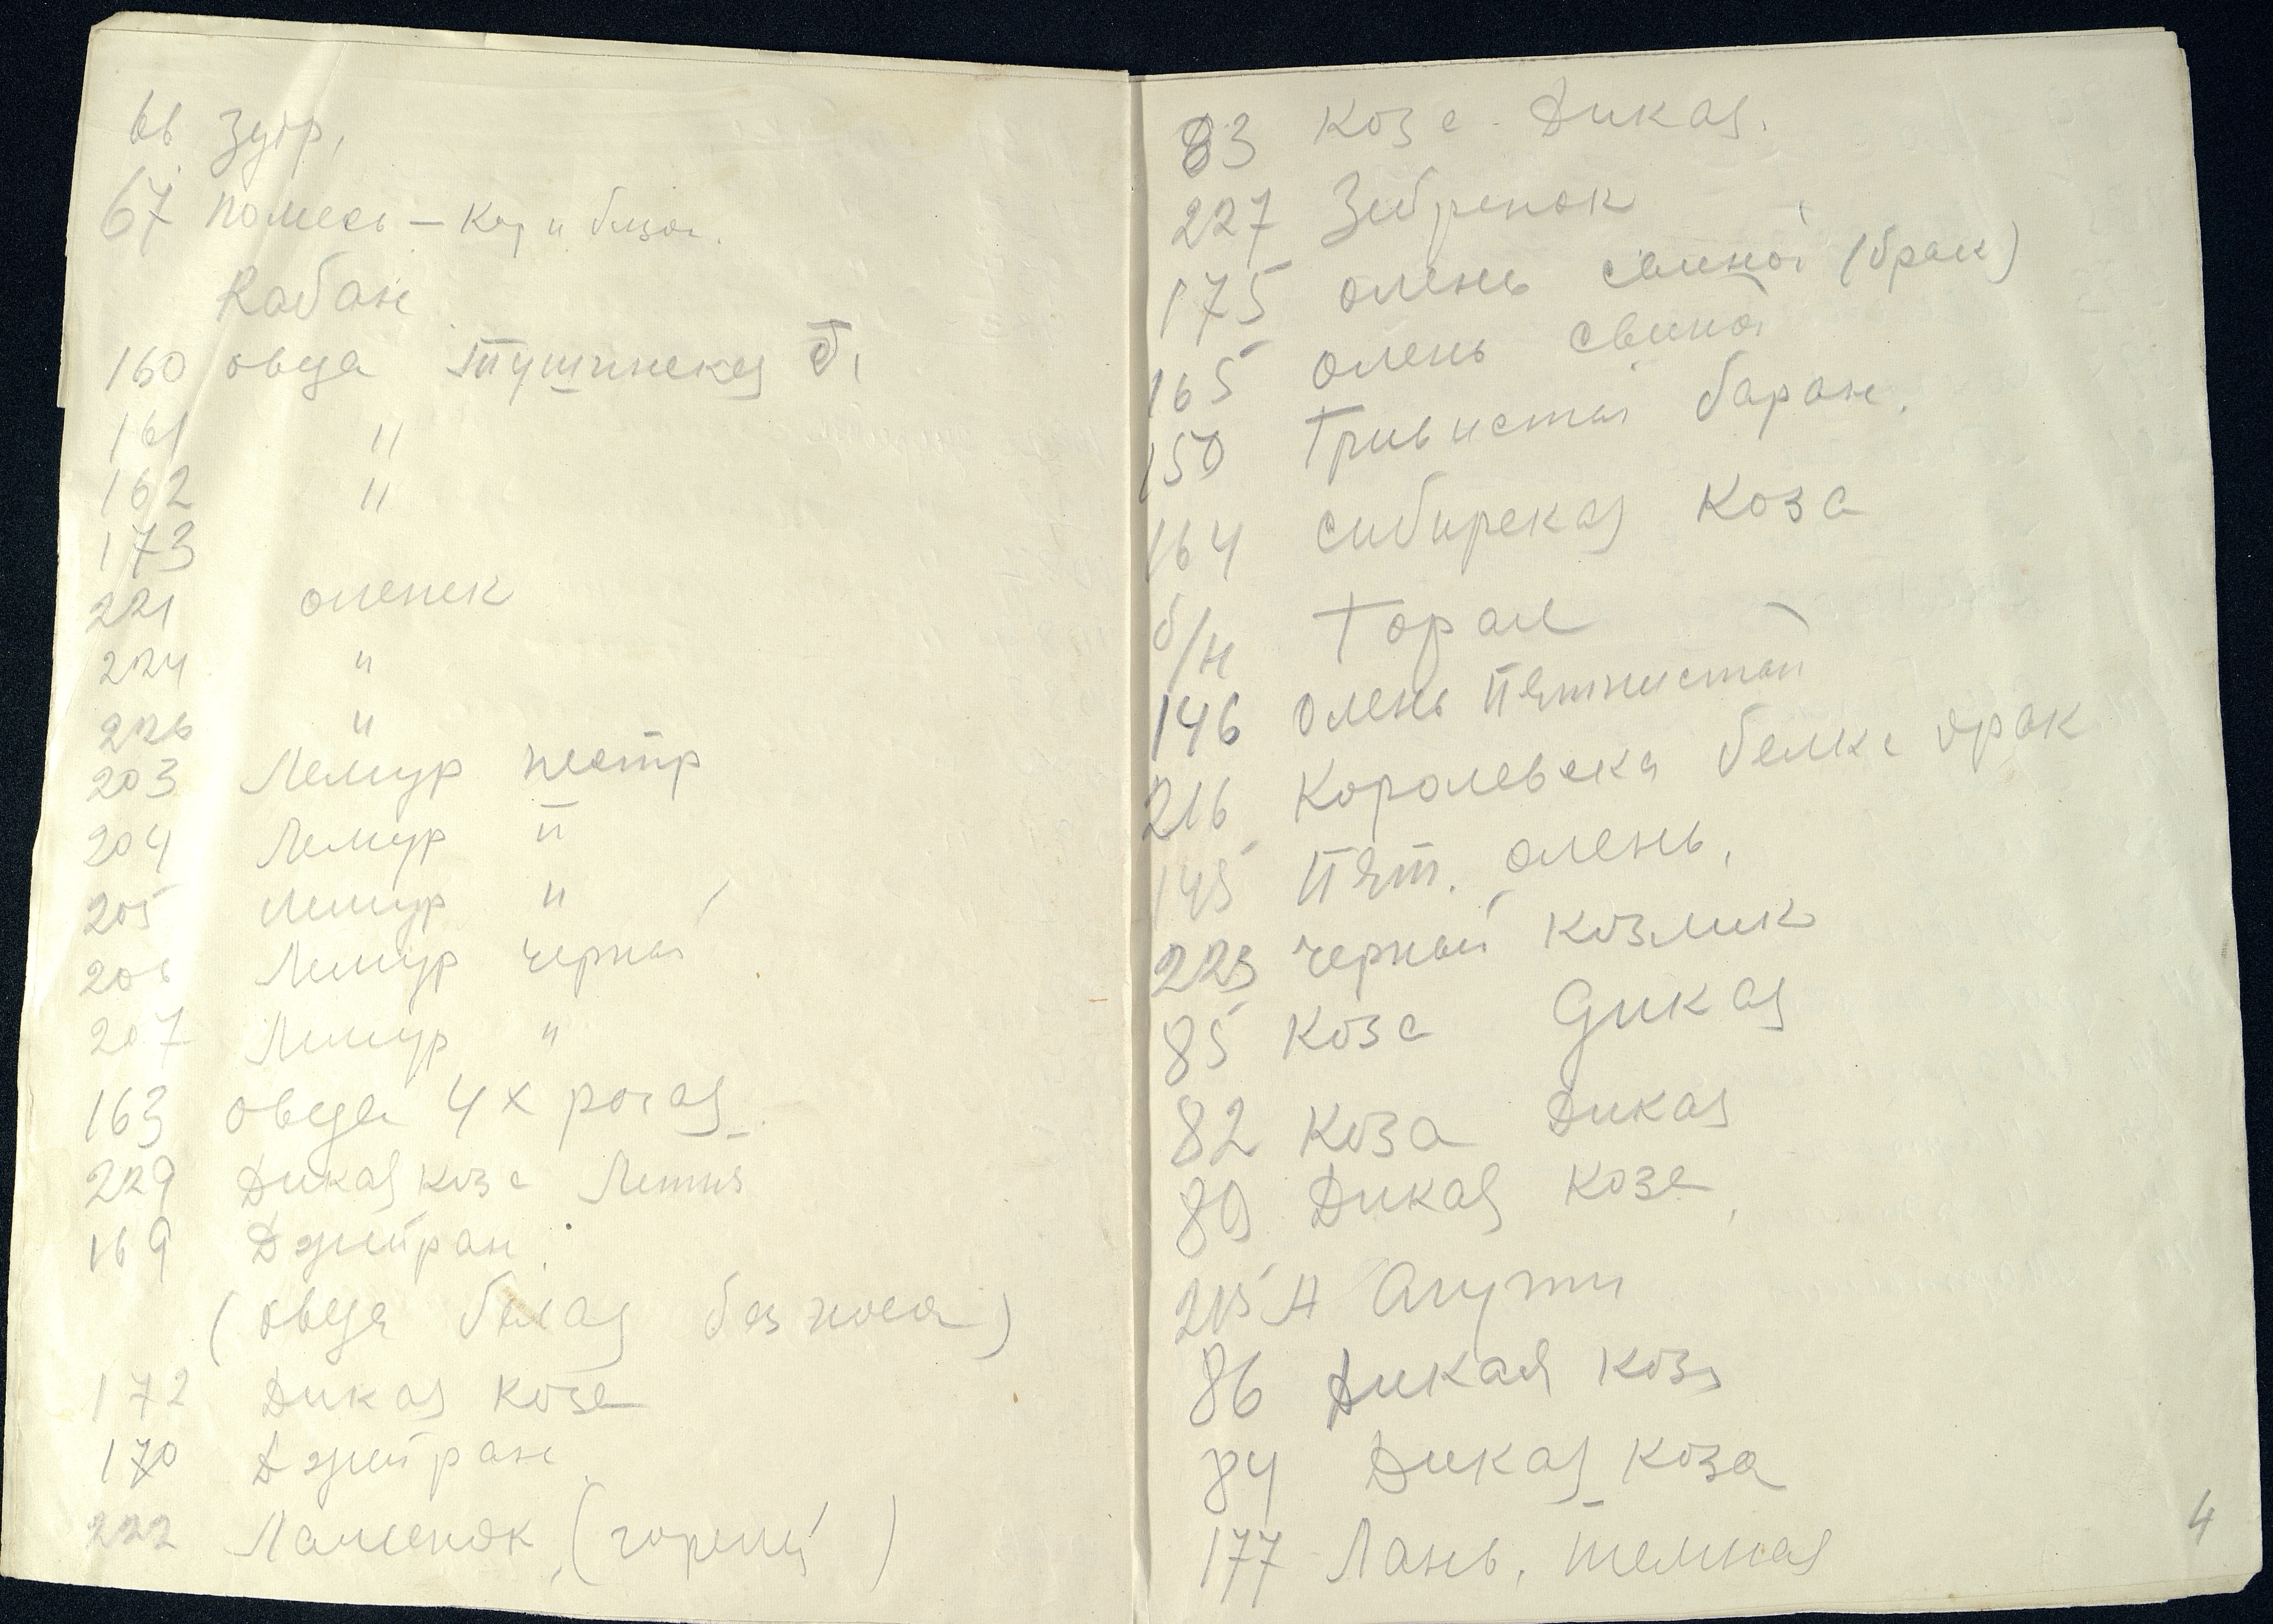 66 Зубр,
67 Помесь – Кор и бизон.
Кабан
160 овца Тушинская б,
161 "
162 "
173
221 оленек
224 "
226 "
203 Лемур пестр
204 Лемур "
205 Лемур "
206 Лемур черный
207 Лемур "
163 овца 4х рогая
229 Дикая коза
169 Джейран
(овца белая без носа)
172 Дикая коза
170 Джейран
222 (горелый)
83 Коза Дикая.
227 Зебренок
175 олень свиной (брак)
165 Олень свиной
150 Гривистый баран.
164 сибирская коза
б/н Горал
146 Олень пятнистый
216 Королевска белка брак
145 Пят. олень,
223 черный козлик
85 Коза дикая
82 Коза Дикая
89 Дикая коза,
215 А Агути
86 Дикая коза
84 Дикая коза
177 Лань, темная
4